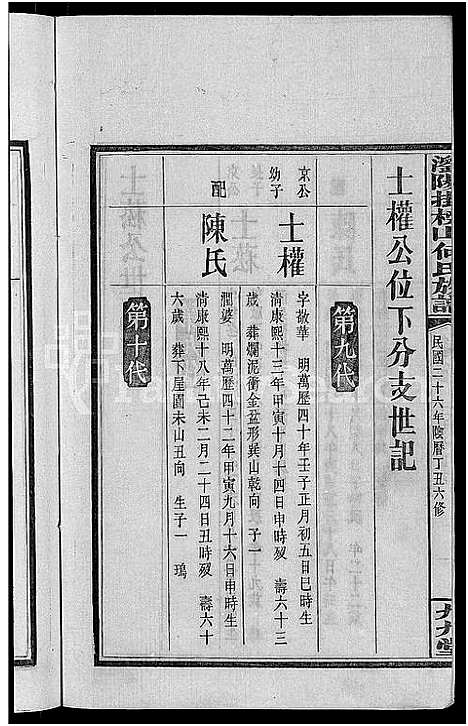 瀏陽掛榜山何氏族譜
民國二十六年陰曆丁丑六修
九九堂
士權公位下分支世記
第九代
京公
幼子
士權
字敬華 明萬歷四十年壬子正月初五日巳時生
清康熙十三年甲寅十月十四日申時歿 壽六十三
歲 葬爛泥衝金盆形巽山乾向 子一
配
陳氏
潤婆 明萬歷四十二年甲寅九月十六日申時生
清康熙十八年己未二月二十四日丑時歿 壽六十
六歲 葬下屋園未山丑向 生子一 瑪
第十代